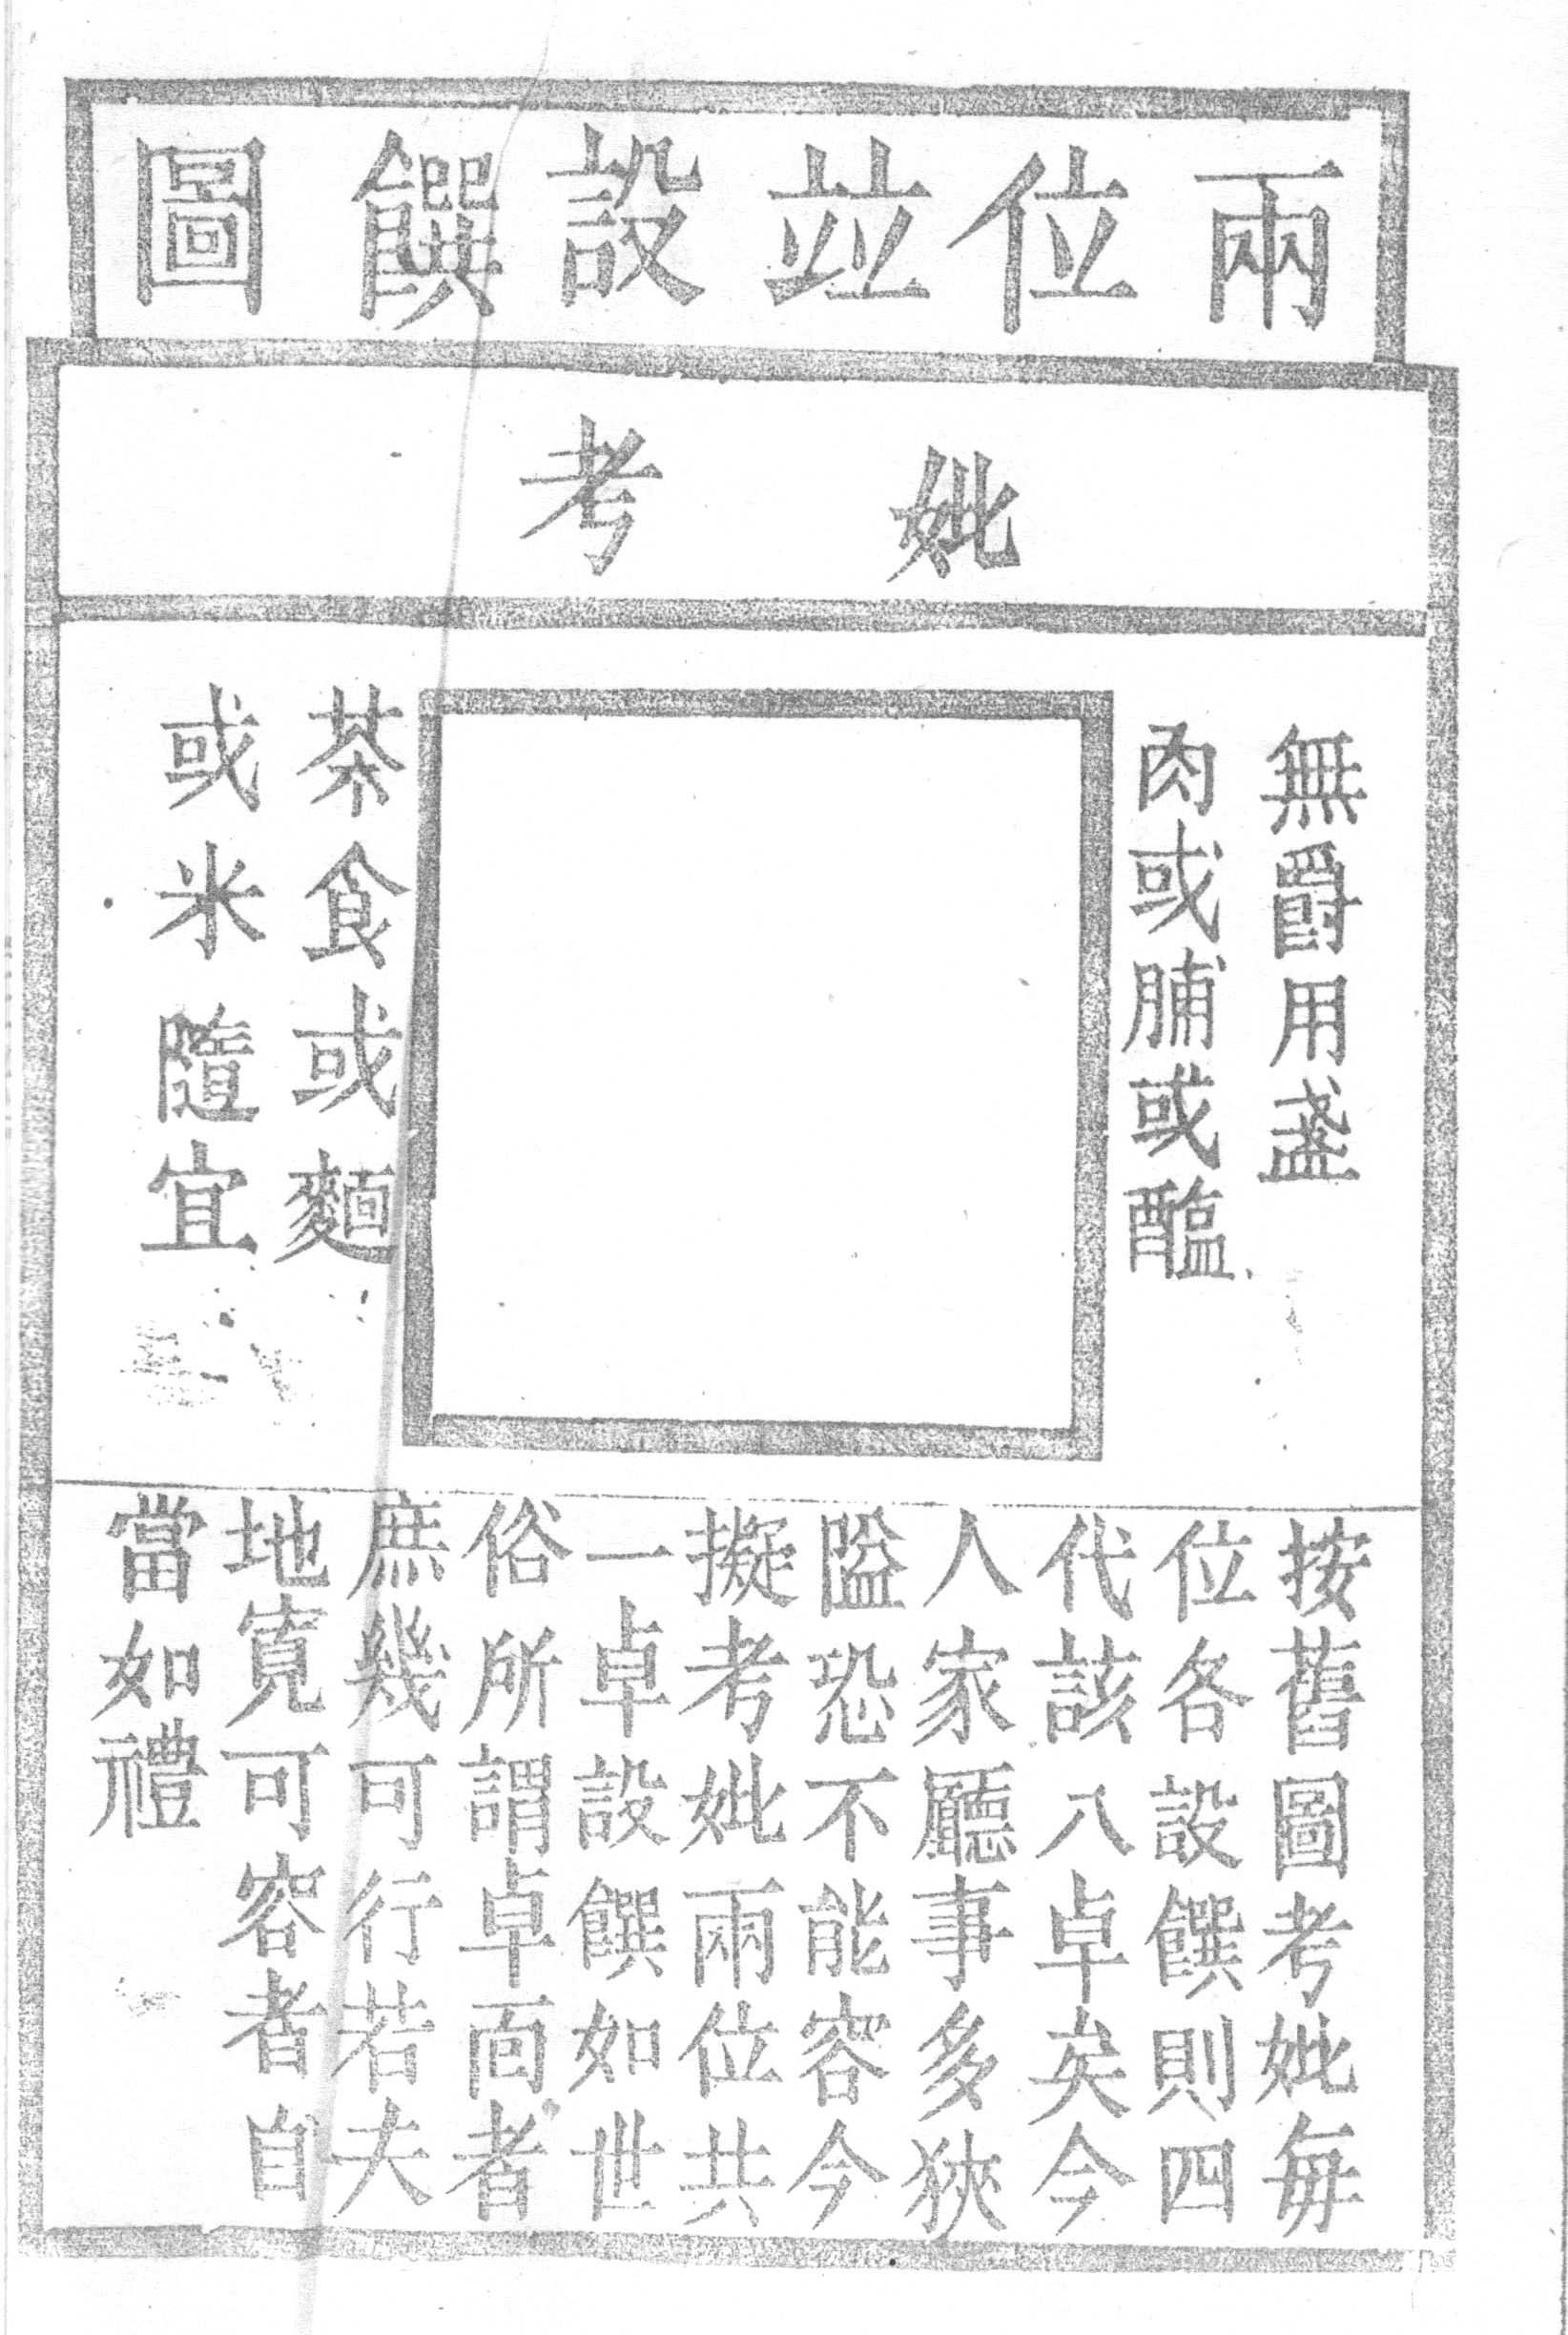 兩位竝設饌圖
妣
考
無爵用盞
肉或脯或醢
茶食或麵
或米隨宜
按舊圖考妣每
位各設饌則四
代該八卓矣今
人家廳事多狹
隘恐不能容今
擬考妣兩位共
一卓設饌如世
俗所謂卓面者
庶幾可行若夫
地寬可容者自
當如禮